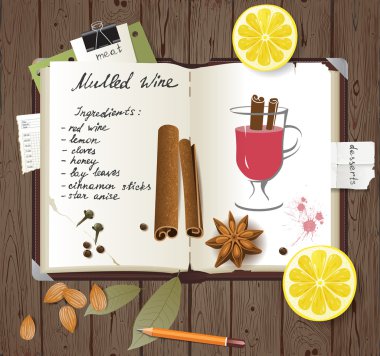 meat
Mulled Wine
Ingredients:
- red wine
- lemon
- cloves
- honey
- bay leaves
- cinnamon sticks
- star anise
desserts